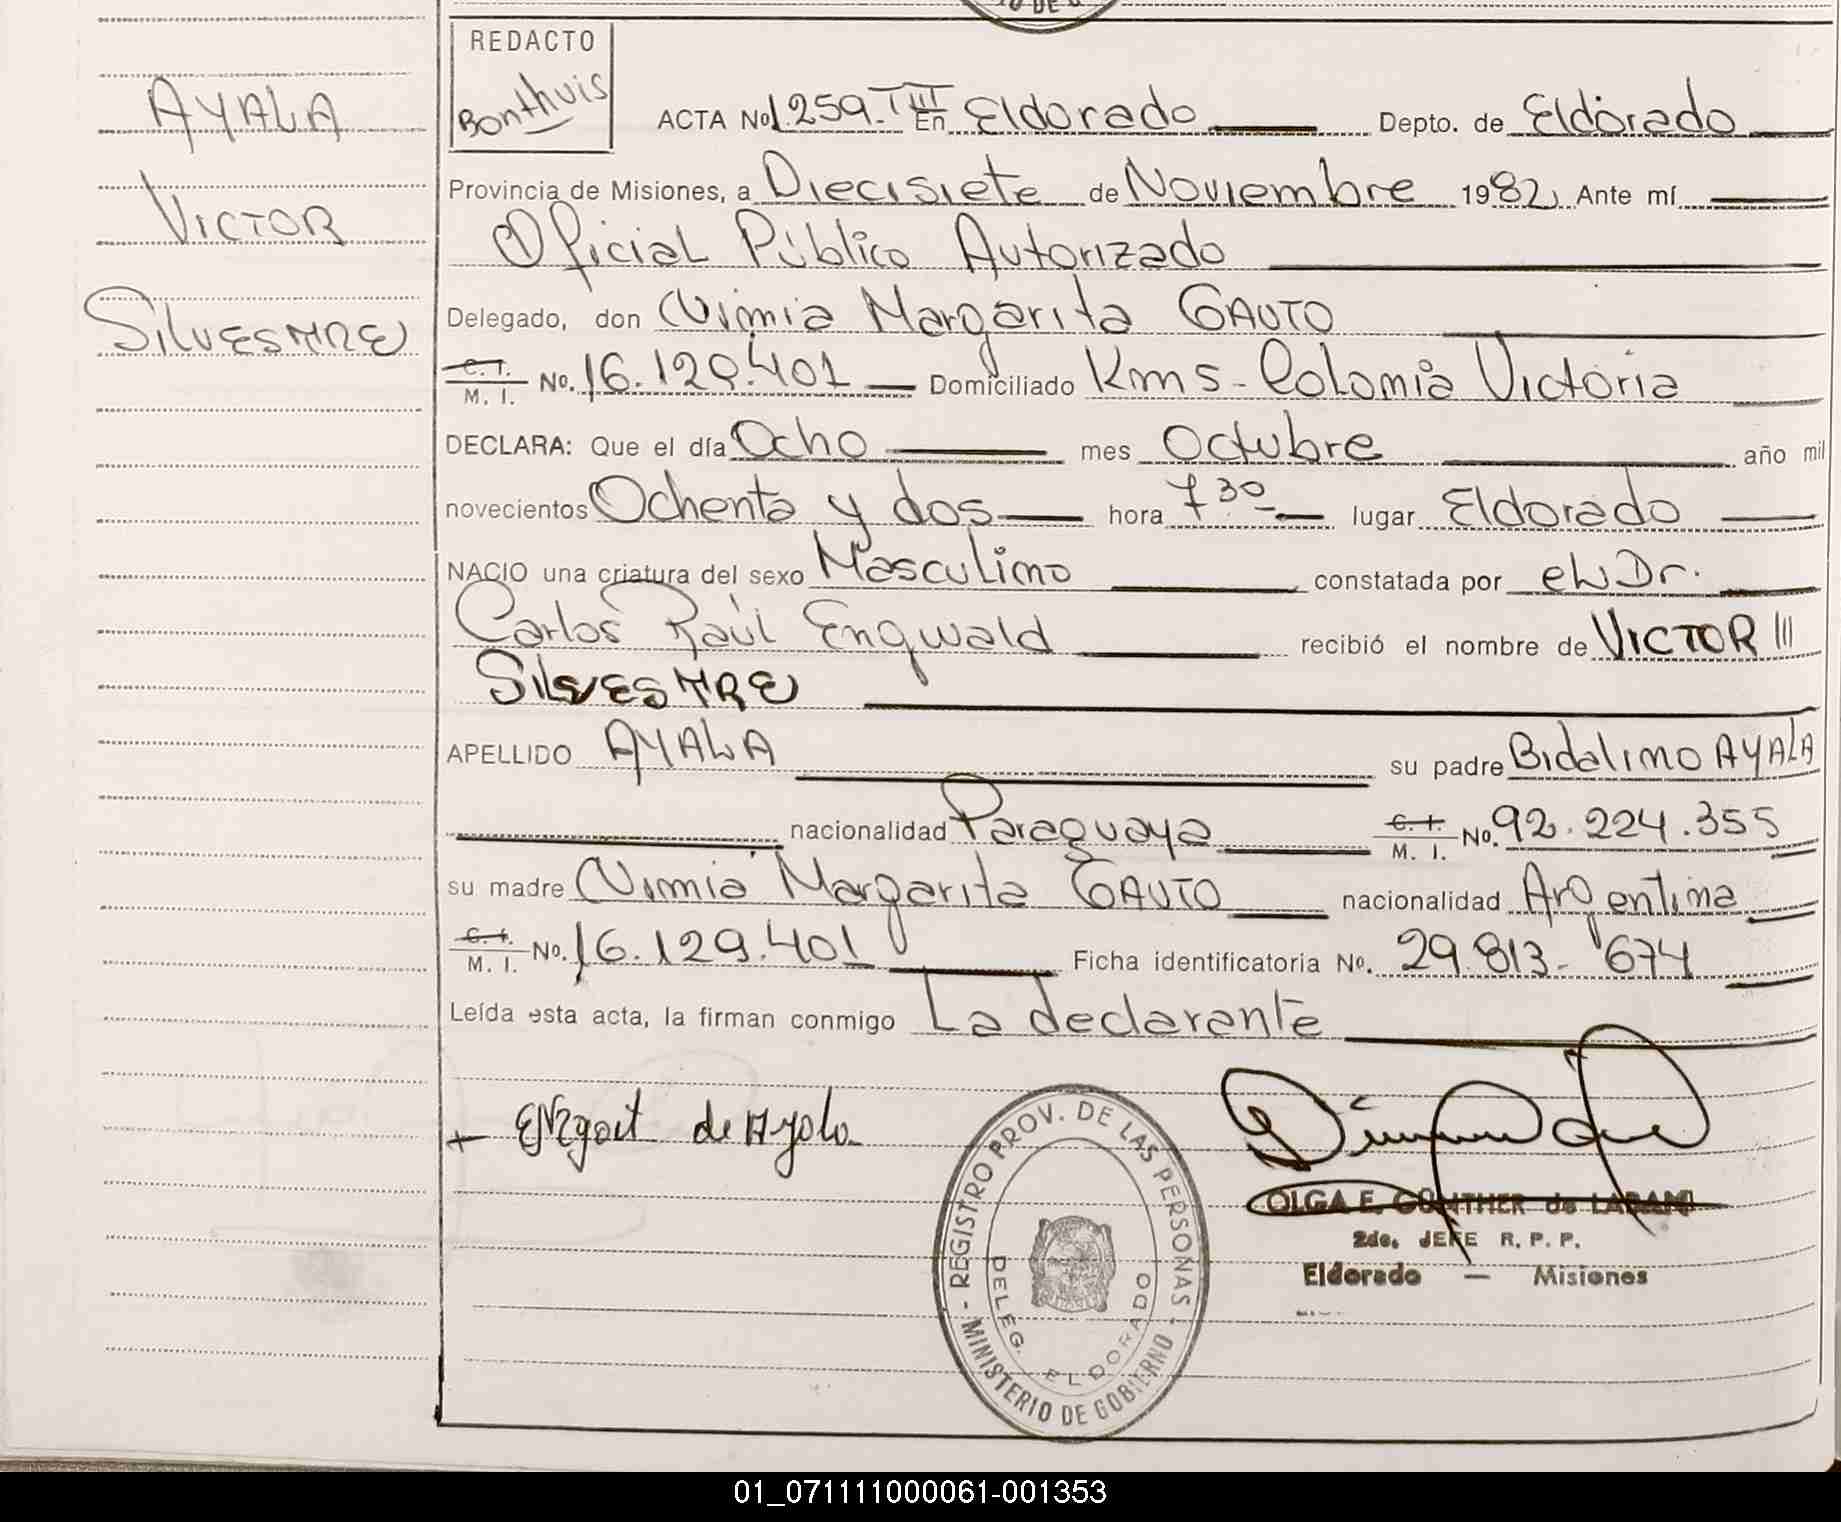 REDACTO
Bonthuis
AYALA
VICTOR
SILVESTRE
ACTA No 1.259.-TºIII En Eldorado Depto. de Eldorado
Provincia de Misiones, a Diecisiete de Noviembre 1982, Ante mí
Oficial Público Autorizado
Delegado, don Nimia Margarita GAUTO
C. I.
M. I. No. 16.129.401 Domiciliado Km5- Colonia Victoria
DECLARA: Que el día Ocho mes Octubre año mil
novecientos Ochenta y dos hora 7.30 lugar Eldorado
NACIO una criatura del sexo Masculino constatada por el Dr.
Carlos Raúl Engwald recibió el nombre de VICTOR
SILVESTRE
APELLIDO AYALA su padre Bidalino AYALA
nacionalidad Paraguaya C. I.
M. I. No. 92.224.355
su madre Nimia Margarita GAUTO nacionalidad Argentina
C. I.
M. I. No. 16.129.401 Ficha identificatoria No. 29.813-674
Leída esta acta, la firman conmigo La declarante
de Ayala
REGISTRO PROV. DE LAS PERSONAS - MINISTERIO DE GOBIERNO -
DELEG. ELDORADO
OLGA E. GÜNTHER de
2do. JEFE R. P. P.
Eldorado — Misiones
01_071111000061-001353